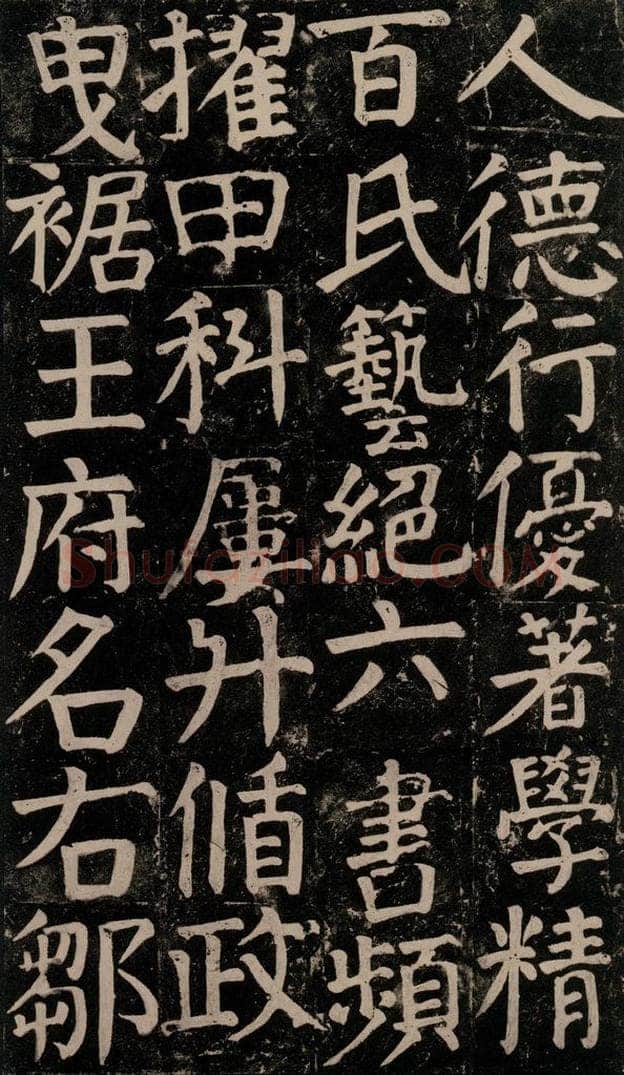 人德行優著學精
百氏藝絕六書頻
擢甲科屢升偱政
曳裾王府名右鄒
Shufaziliao.COM